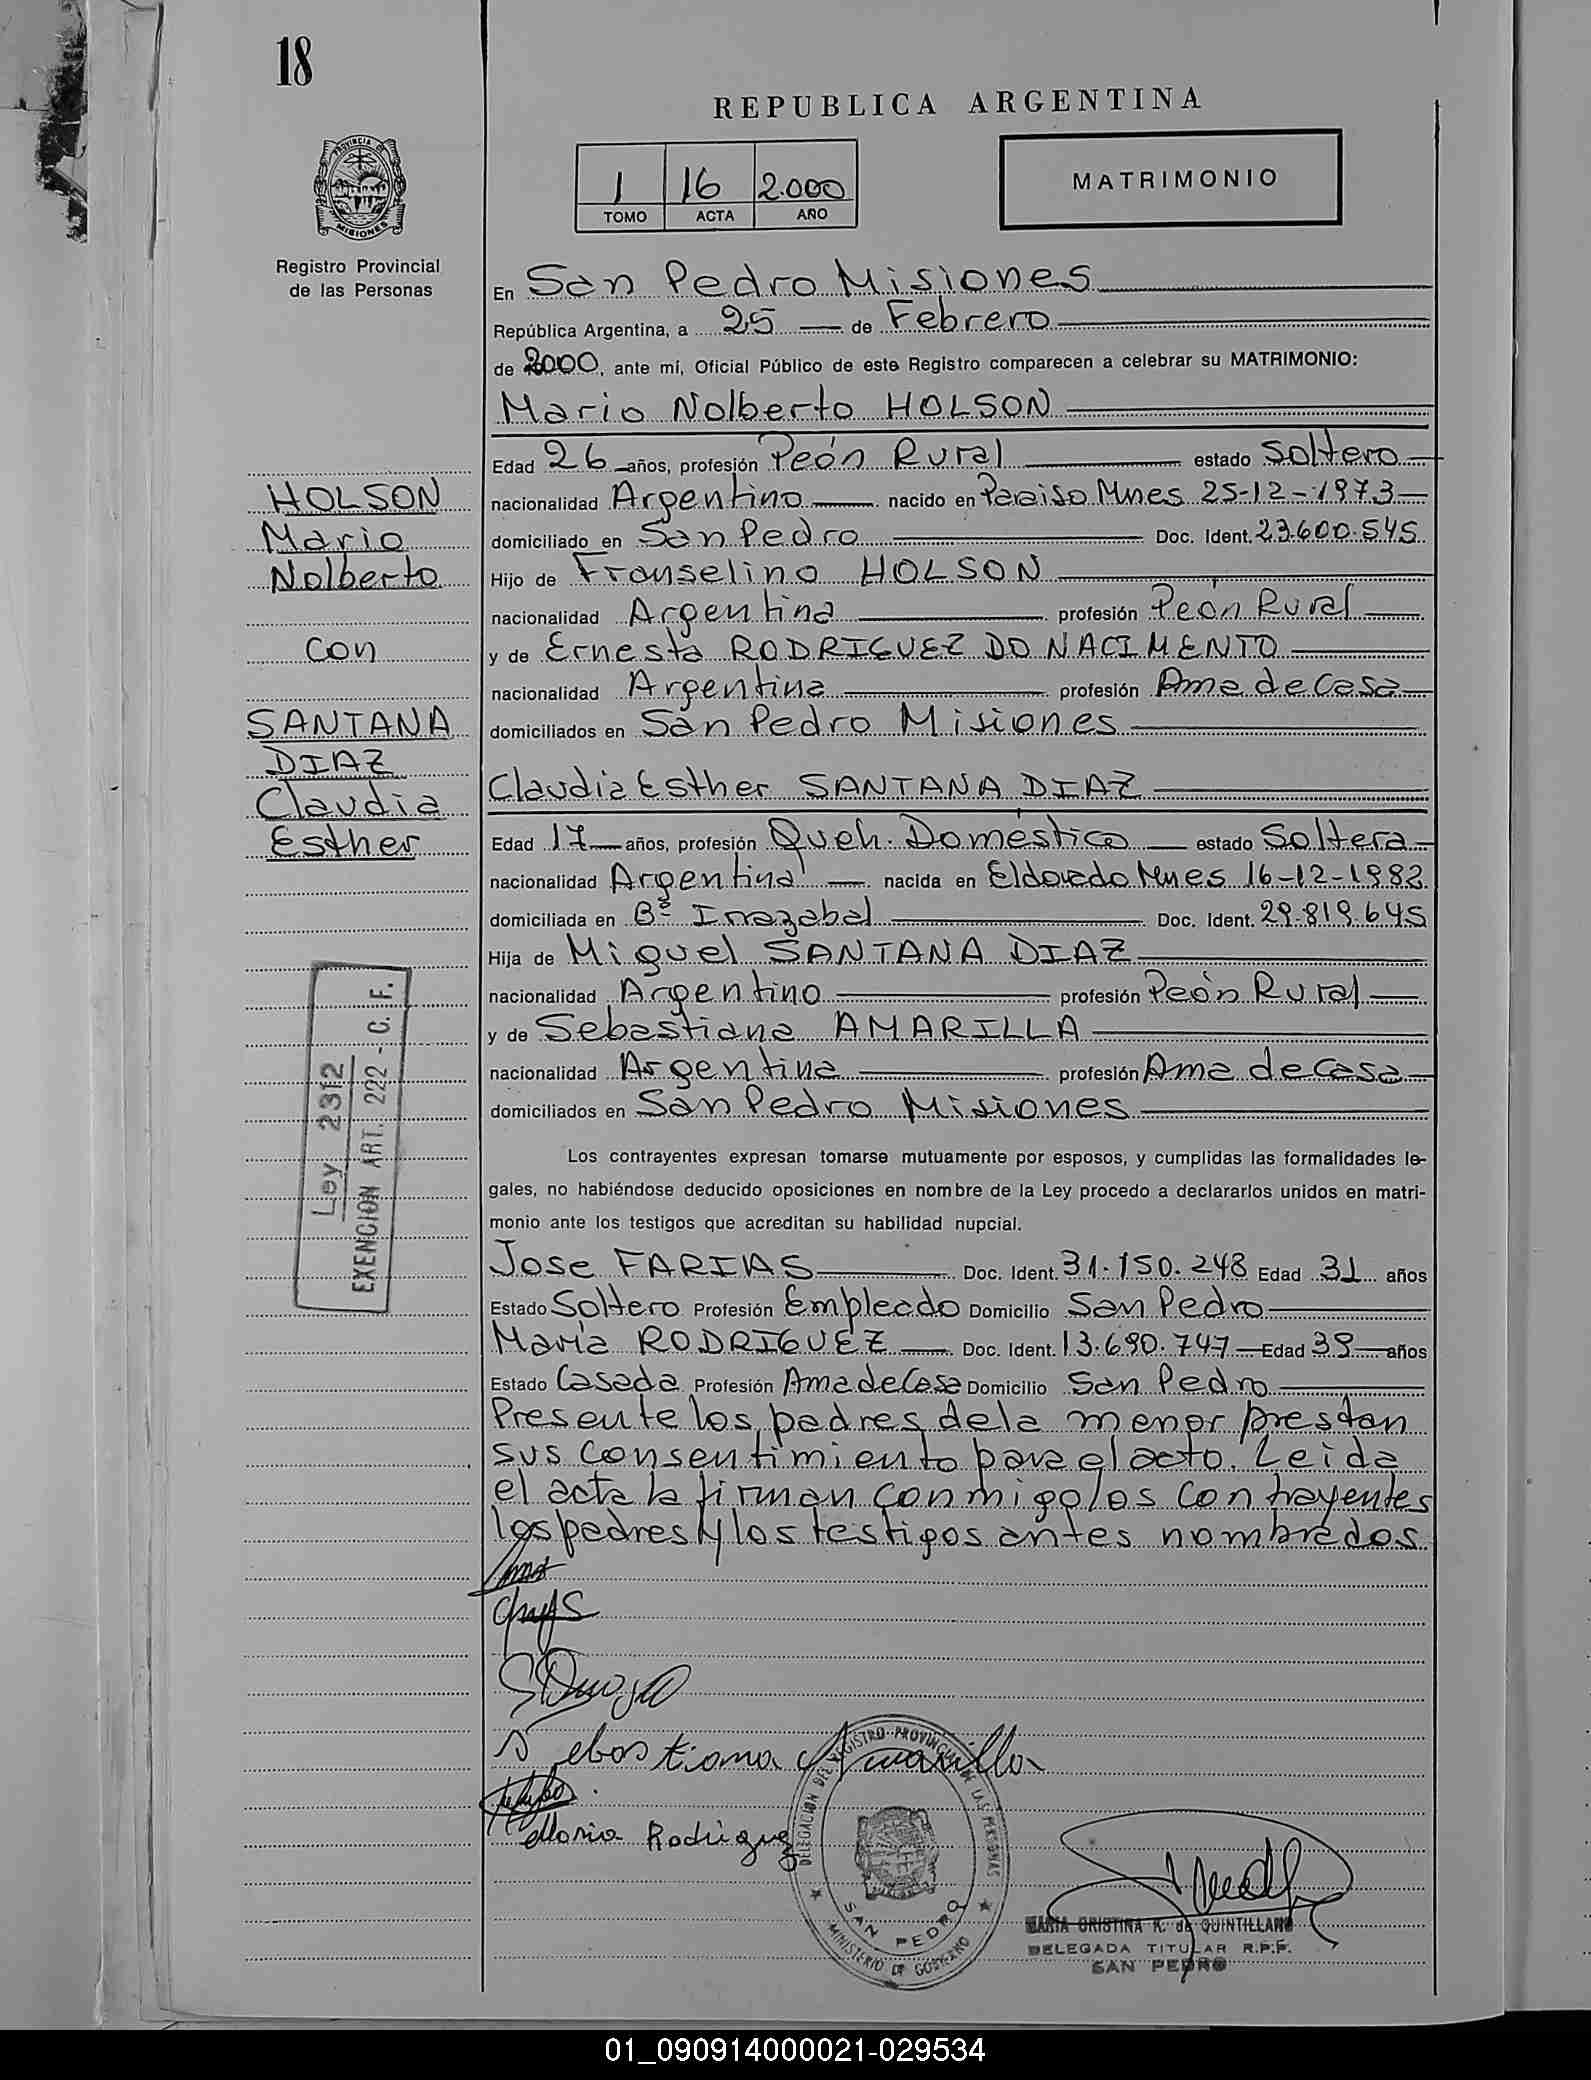 18
REPUBLICA ARGENTINA
1 16 2.000
TOMO ACTA AÑO
MATRIMONIO
PROVINCIA DE
MISIONES
Registro Provincial
de las Personas
En San Pedro Misiones
República Argentina, a 25 de Febrero
de 2000, ante mí, Oficial Público de este Registro comparecen a celebrar su MATRIMONIO:
Mario Nolberto HOLSON
Edad 26 años, profesión Peón Rural estado Soltero
nacionalidad Argentino nacido en Paraiso Mnes 25-12-1973
domiciliado en San Pedro Doc. Ident. 23.600.545
Hijo de Franselino HOLSON
nacionalidad Argentina profesión Peón Rural
y de Ernesta RODRIGUEZ DO NACIMENTO
nacionalidad Argentina profesión Ama de Casa
domiciliados en San Pedro Misiones
Claudia Esther SANTANA DIAZ
Edad 17 años, profesión Queh. Doméstico estado Soltera
nacionalidad Argentina nacida en Eldorado Mnes 16-12-1982
domiciliada en Bº Irrazabal Doc. Ident. 29.819.645
Hija de Miguel SANTANA DIAZ
nacionalidad Argentino profesión Peón Rural
y de Sebastiana AMARILLA
nacionalidad Argentina profesión Ama de Casa
domiciliados en San Pedro Misiones
Los contrayentes expresan tomarse mutuamente por esposos, y cumplidas las formalidades le-
gales, no habiéndose deducido oposiciones en nombre de la Ley procedo a declararlos unidos en matri-
monio ante los testigos que acreditan su habilidad nupcial.
Jose FARIAS Doc. Ident. 31.150.248 Edad 31 años
Estado Soltero Profesión Empleado Domicilio San Pedro
María RODRIGUEZ Doc. Ident. 13.690.747 Edad 39 años
Estado Casada Profesión Ama de Casa Domicilio San Pedro
Presente los padres de la menor prestan
sus consentimiento para el acto. Leida
el acta la firman conmigo los contrayentes
los padres y los testigos antes nombrados
HOLSON
Mario
Nolberto
con
SANTANA
DIAZ
Claudia
Esther
Ley 2312
EXENCION ART. 222 - C. F.
Sebastiana Amarilla
Maria Rodriguez
DELEGACION DEL REGISTRO PROVINCIAL DE LAS PERSONAS
SAN PEDRO
MINISTERIO DE GOBIERNO
MARIA CRISTINA K. de QUINTILLANO
DELEGADA TITULAR R.P.P.
SAN PEDRO
01_090914000021-029534